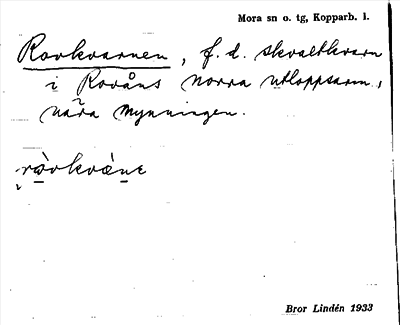 Mora sn o. tg, Kopparb. l.
Rovkvarnen, f. d. skvaltkvarn
i Rovåns norra utloppsarm,
nära mynningen.
ròvkvènɛ
Bror Lindén 1933